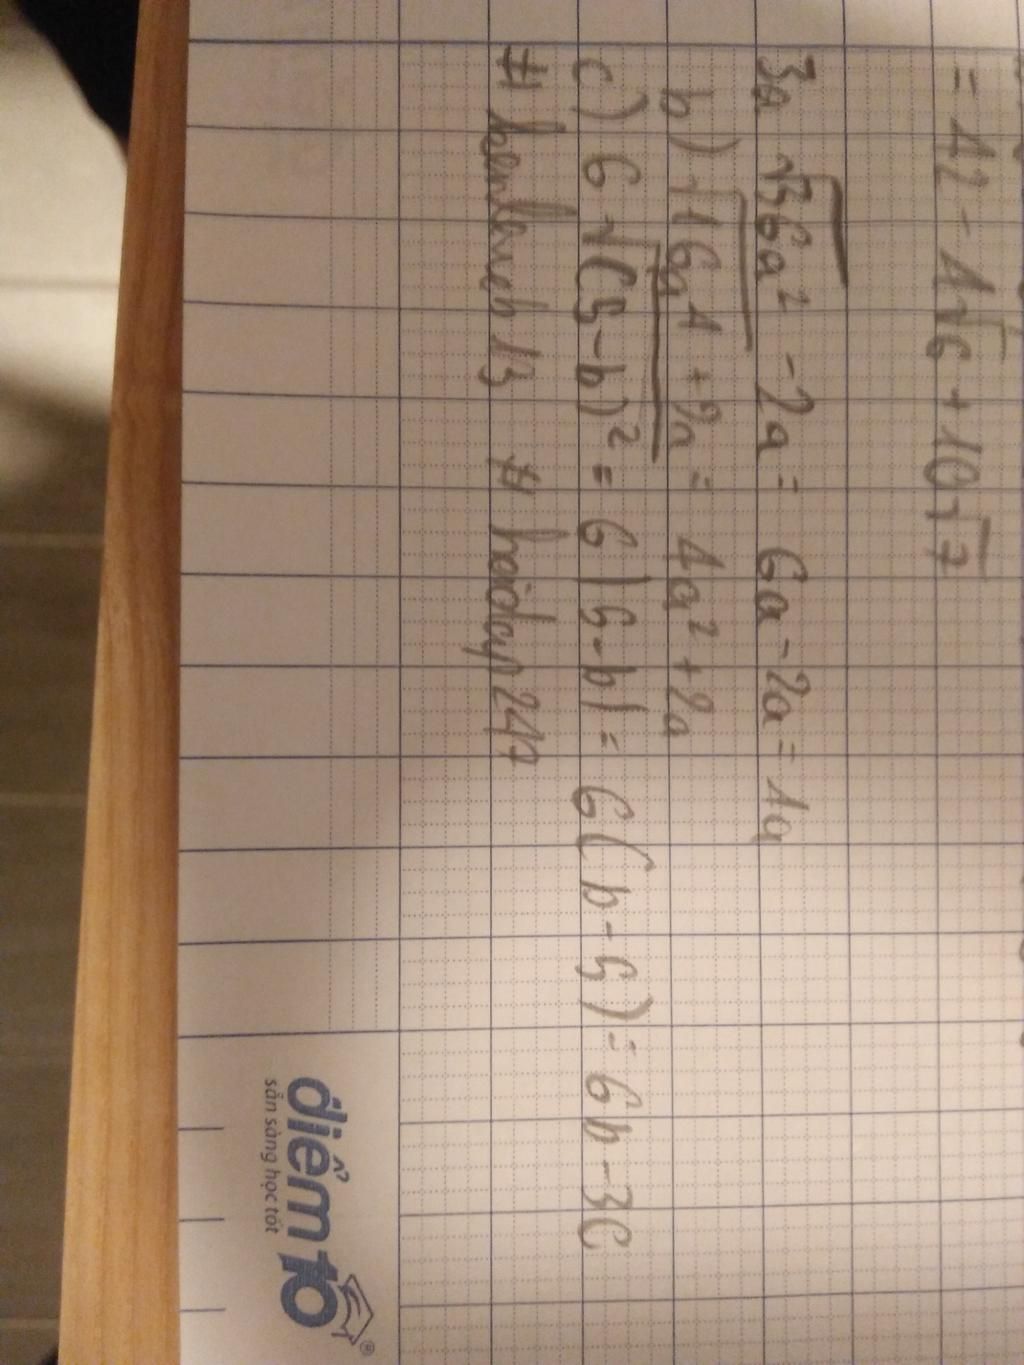 = 42 - 4√6 + 10√7
3a √36a² - 2a = 6a - 2a = 4a
b) √16a⁴ + 2a = 4a² + 2a
c) 6√(5-b)² = 6|5-b| = 6(b-5) = 6b-30
# # hoidap247
điểm10®
sẵn sàng học tốt